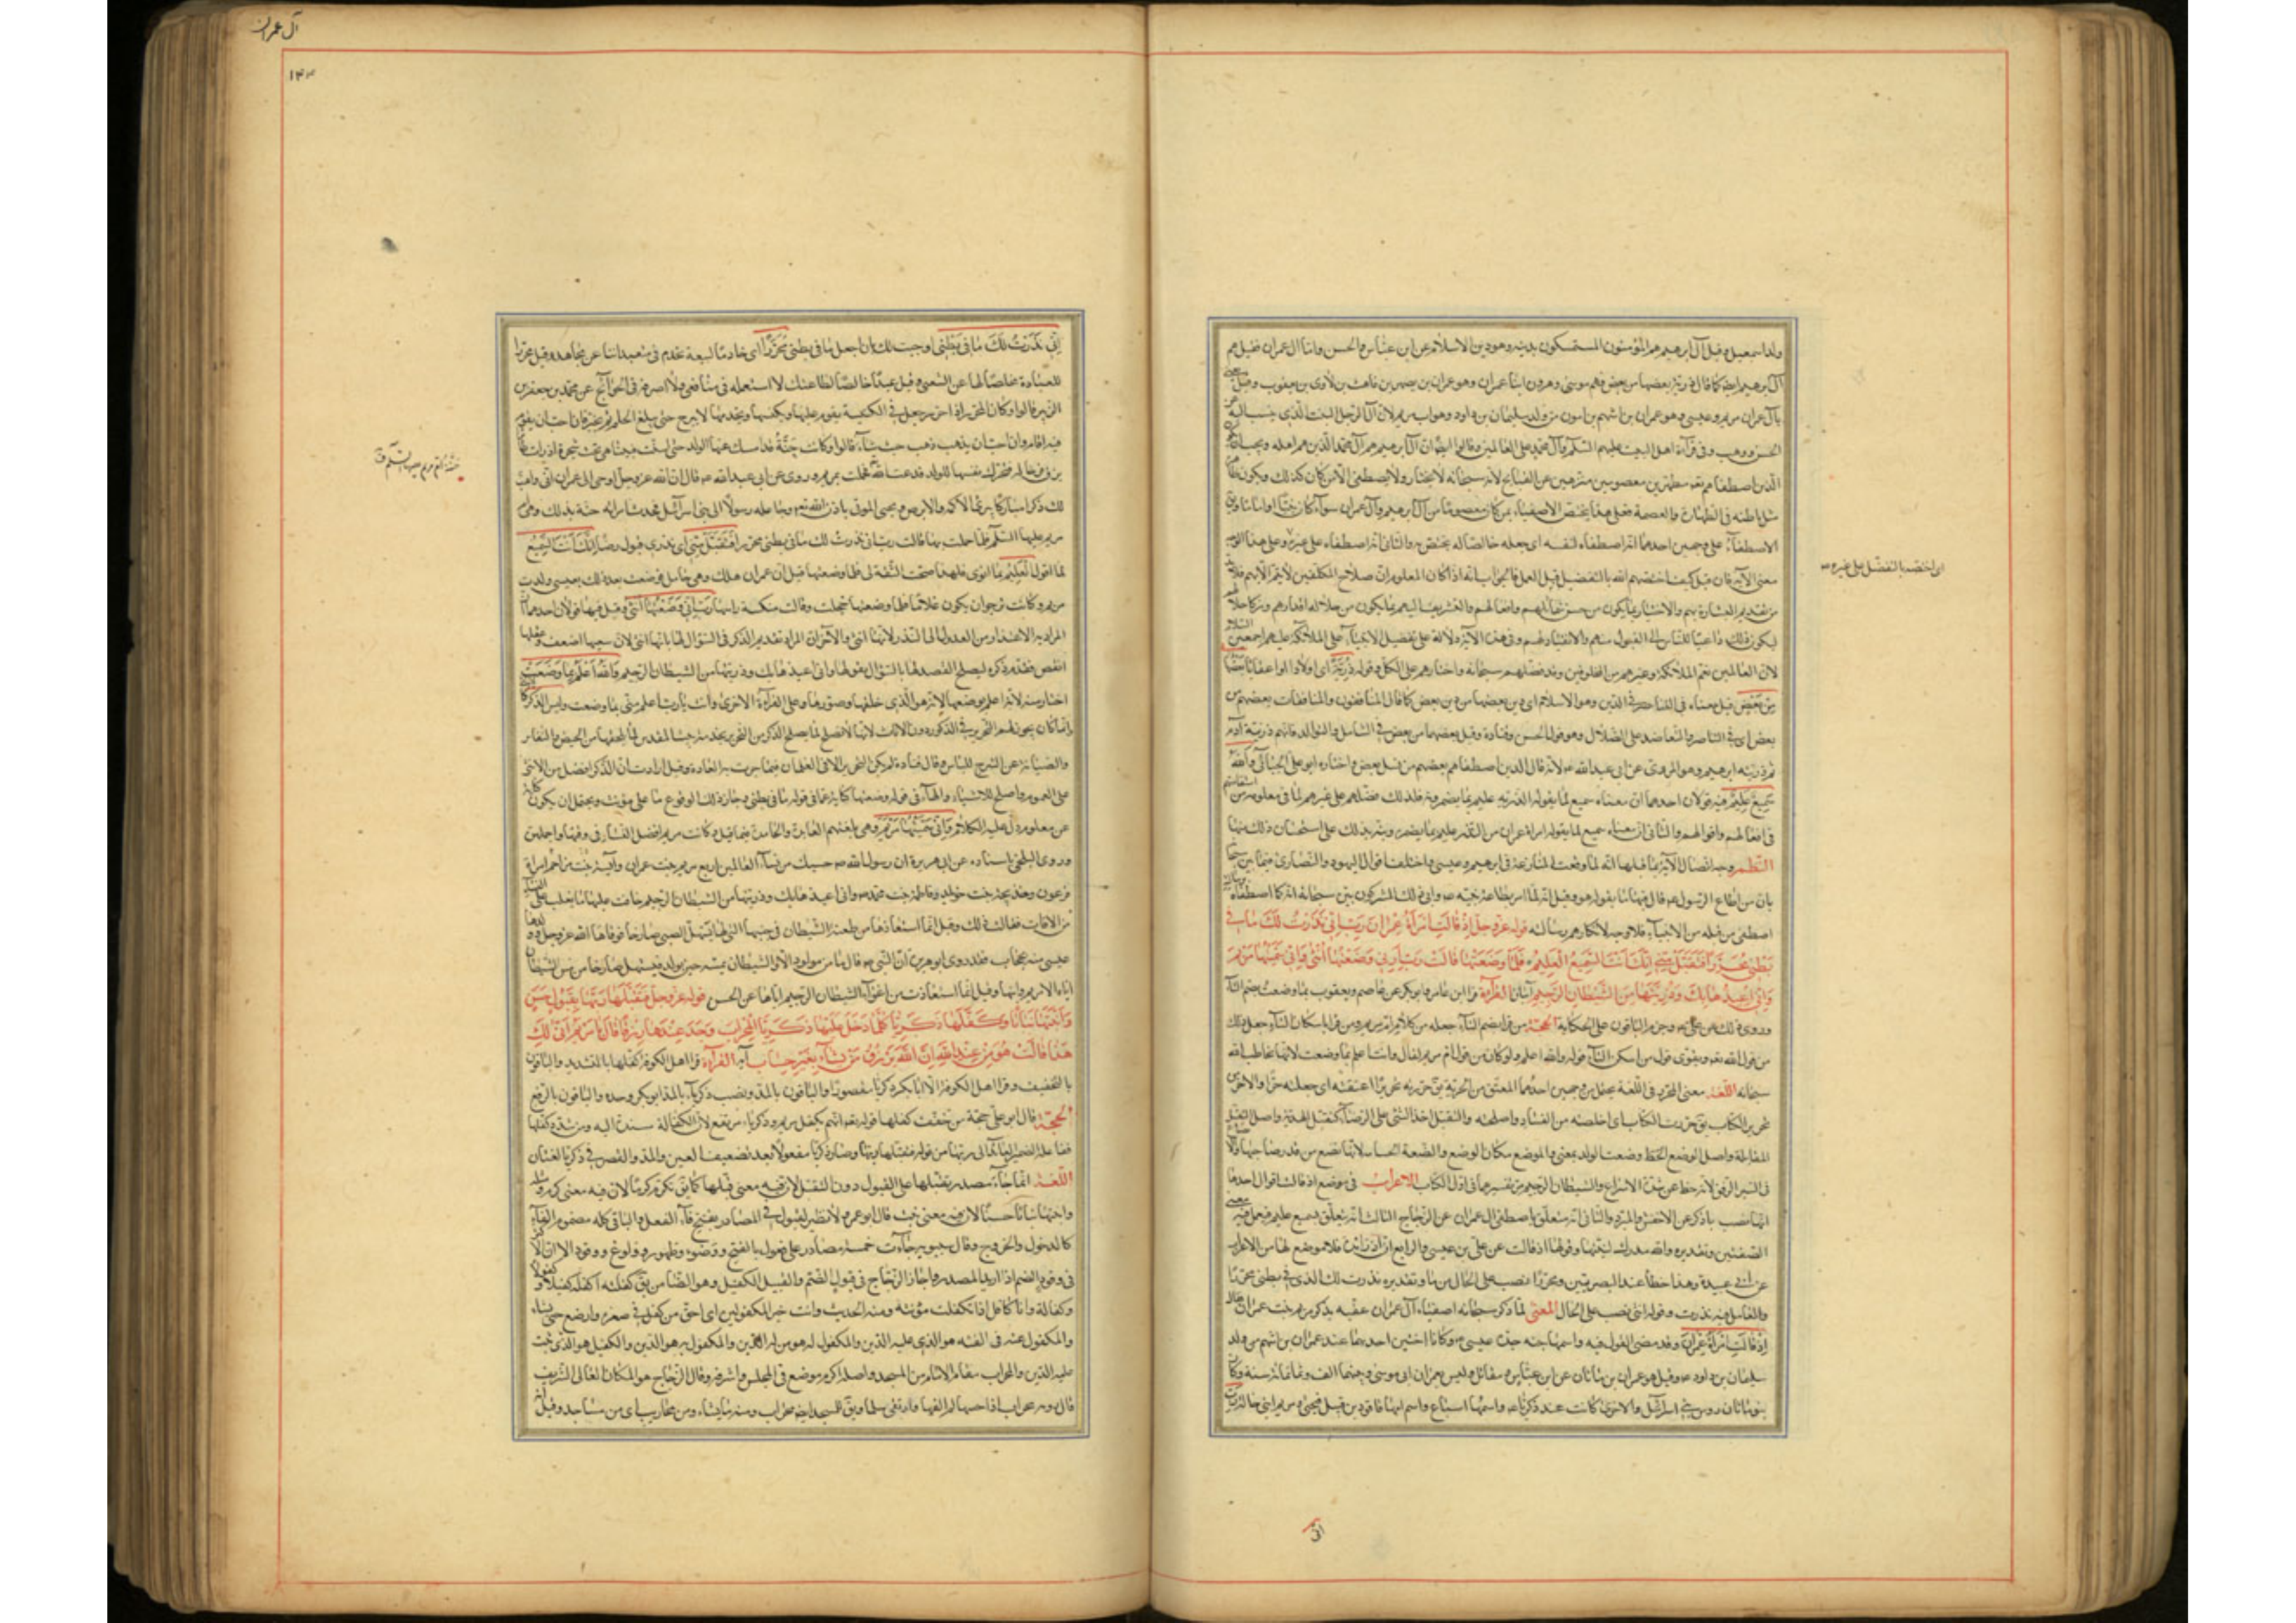 ولد اسمعيل وقيل آل ابرهيم هم المؤمنون المتمسكون بدينه وهو دين الاسلام عن ابن عباس والحسن واما آل عمران فقيل هم
آل ابرهيم ايضا كما قال ذرية بعضها من بعض فهم موسى وهرون ابنا عمران وهو عمران بن يصهر بن قاهث بن لاوى بن يعقوب وقيل يعنى
بآل عمران مريم وعيسى وهو عمران بن اشهم بن امون من ولد سليمان بن داود وهو اب مريم لان آل الرجل البيت الذى ينتسب اليه عن
الحسن ووهب وفى قراءة اهل البيت عليهم السلم وآل محمد على العالمين وقالوا ايضا ان آل ابرهيم هم آل محمد الذين هم اهله ويجب ان يكون
الذين اصطفاهم الله مطهرين معصومين منزهين عن القبايح لانه سبحانه لا يختار ولا يصطفى الا من كان كذلك ويكون ظاهره
مثل باطنه فى الطهارة والعصمة فعلى هذا يختص الاصطفاء بمن كان معصوما من آل ابرهيم وآل عمران سواء كان نبيا او اماما ويق
الاصطفاء على وجهين احدهما انه اصطفاه لنفسه اى جعله خالصا له يختص به والثانى انه اصطفاه على غيره وعلى هذا الوجه
معنى الآية فان قيل كيف اختصهم الله بالتفضيل قبل العمل فالجواب انه اذا كان المعلوم ان صلاح المكلفين لا يتم الا بهم فلا بد
من تقديم البشارة بهم والاخبار بما يكون من حسن شمائلهم وافعالهم والتشريف اليهم بما يكون من جلالة اقدارهم وزكاء خلالهم
ليكون ذلك داعيا للناس الى القبول منهم والانقياد لهم وفى هذا الآية دلالة على تفضيل الانبياء على الملائكة عليهم اجمعين السلام
لان العالمين يعم الملائكة وغيرهم من المخلوقين وقد فضلهم سبحانه واختارهم على الكل وقوله ذرية اى اولادا واعقابا بعضها
من بعض قيل معناه فى التناصر فى الدين وهو الاسلام اى دين بعضها من دين بعض كما قال المنافقون والمنافقات بعضهم من
بعض اى فى التناصر والتعاضد على الضلال وهو قول الحسن وقتادة وقيل بعضها من بعض فى التناسل والتوالد فانهم ذرية آدم
ثم ذرية ابرهيم وهو المروى عن ابى عبدالله ع لانه قال الذين اصطفاهم بعضهم من نسل بعض واختاره ابو على الجبائى والله
سميع عليم فيه قولان احدهما ان معناه سميع لما يقوله الذرية عليم بما يضمرونه فلذلك فضلهم على غيرهم لما فى معلومه من استقامتهم
فى افعالهم واقوالهم والثانى ان معناه سميع لما يقوله امراة عمران من النذر عليم بما يضمره ونبه بذلك على استحسان ذلك منها
النظم وجه اتصال الآية بما قبلها انه لما وقعت المنازعة فى ابرهيم وعيسى واختلف اقوال اليهود والنصارى فيهما بين سبحانه
بان من اطاع الرسول ع قال فيهما ما يقوله هو وقيل انه لما امر بطاعة نبيه ص وابى ذلك المشركون بين سبحانه انه كما اصطفاه لرسالته
اصطفى من قبله من الانبياء فلا وجه لانكارهم رسالته قوله عز وجل اذ قالت امرأة عمران رب انى نذرت لك ما فى
بطنى محررا فتقبل منى انك انت السميع العليم فلما وضعتها قالت رب انى وضعتها انثى وانى سميتها مريم
وانى اعيذها بك وذريتها من الشيطان الرجيم آيتان القراءة قرأ ابن عامر وابو بكر عن عاصم ويعقوب بما وضعت بضم التاء
وروى ذلك عن على ع وجزم الباقون على الحكاية الحجة من قرأ بضم التاء جعله من كلام ام مريم ومن قرأ باسكان التاء جعل ذلك
من قول الله تعه ويقوى قول من اسكن التاء قوله والله اعلم ولو كان من قول ام مريم لقال وانت اعلم بما وضعت لانها تخاطب الله
سبحانه اللغة معنى المحرر فى اللغة يحتمل وجهين احدهما المعتق من الحرية يق حررته تحريرا اعتقته اى جعلته حرا والاخر من
تحرير الكتاب يق حررت الكتاب اى اخلصته من الفساد واصلحته والتقبل اخذ الشئ على الرضا به كتقبل الهدية واصل التقبل
المقابلة واصل الوضع الحط وضعت الولد بمعنى والموضع مكان الوضع والضعة الخساسة لانها تضع من قدر صاحبها والايضاع
فى السير الرفق لانه حط عن شدة الاسراع والشيطان الرجيم مر تفسيرهما فى اول الكتاب الاعراب فى موضع اذ قالت اقوال احدها
انها نصب باذكر عن الاخفش والمبرد والثانى انه متعلق باصطفى آل عمران عن الزجاج الثالث انه يتعلق بسميع عليم فيعمل فيه معنى
الصفتين وتقديره والله مدرك لنيتها وقولها اذ قالت عن على بن عيسى والرابع ان اذ زائدة فلا موضع لها من الاعراب
عن ابى عبيدة وهذا خطأ عند البصريين ومحررا نصب على الحال من ما وتقديره نذرت لك الذى فى بطنى محررا
والعامل فيه نذرت وقوله انثى نصب على الحال المعنى لما ذكر سبحانه اصطفاء آل عمران عقبه بذكر مريم بنت عمران فقال
اذ قالت امرأة عمران وقد مضى القول فيه واسمها حنه جدة عيسى ع وكانتا اختين احديهما عند عمران بن اشهم من ولد
سليمان بن داود ع وقيل هو عمران بن ماثان عن ابن عباس ومقاتل وليس بعمران ابى موسى وبينهما الف وثمانمائة سنة وكان
بنو ماثان رؤس بنى اسرائيل والاخرى كانت عند زكريا ع واسمها اشياع واسم ابيها فاقود بن قبيل فيحيى ومريم ابنى خالة رب
انى
اى اختصه بالتفضل على غيره
آل عمران
١٤٣
انى نذرت لك ما فى بطنى اوجبت لك بان اجعل ما فى بطنى محررا اى خادما للبيعة يخدم فى متعبداتنا عن مجاهد وقيل محررا
للعبادة مخلصا لها عن الشعبى وقيل عتيقا خالصا لطاعتك لا استعمله فى منافعى ولا اصرفه فى الحوائج عن محمد بن جعفر بن
الزبير قالوا وكان المحرر اذا حرر جعل فى الكنيسة يقوم عليها ويكنسها ويخدمها لا يبرح حتى يبلغ الحلم ثم يخير فان احب ان يقيم
فيه اقام وان احب ان يذهب ذهب حيث شاء قالوا وكانت حنة قد امسك عنها الولد حتى اسنت فبينا هى تحت شجرة اذ رأت طائرا
يزق فرخا له فتحركت نفسها للولد فدعت الله فحملت بمريم وروى عن ابى عبدالله ع قال ان الله عز وجل اوحى الى عمران انى واهب
لك ذكرا مباركا يبرئ الاكمه والابرص ويحيى الموتى باذن الله تعه وجاعله رسولا الى بنى اسرائيل فحدث امراته حنة بذلك وهى ام
مريم عليها السلم فلما حملت بها قالت رب انى نذرت لك ما فى بطنى محررا فتقبل منى اى نذرى قبول رضا انك انت السميع
لما اقول العليم بما انوى فلهذا صحت الثقة لى فلما وضعتها قيل ان عمران هلك وهى حامل فوضعت بعد ذلك يعنى ولدت
مريم وكانت ترجو ان يكون غلاما فلما وضعتها خجلت وقالت منكسة راسها رب انى وضعتها انثى وقيل فيها قولان احدهما ان
المراد به الاعتذار من العدول الى النذر لانها انثى والآخر ان المراد تقديم الذكر فى السؤال لها بانها انثى لان سعيها اضعف وعقلها
انقص فقدم ذكره ليصلح القصد لها بالسؤال بقولها وانى اعيذها بك وذريتها من الشيطان الرجيم والله اعلم بما وضعت
اخبار منه لانه اعلم بوضعها لانه هو الذى خلقها وصورها وعلى القراءة الاخرى وانت يا رب اعلم منى بما وضعت وليس الذكر كالانثى
انما كان يجوز لهم التحرير فى الذكور دون الاناث لانها لا تصلح لما يصلح الذكر من التحرير بخدمة بيت المقدس لما يلحقها من الحيض والنفاس
والصيانة عن التبرج للناس وقال قتادة لم يكن التحرير الا فى الغلمان فيما جرت به العادة وقيل ارادت ان الذكر افضل من الانثى
على العموم واصلح للاشياء والهاء فى قوله وضعتها كناية عن ما فى قوله ما فى بطنى وجاز ذلك لوقوع ما على مؤنث ويحتمل ان يكون كناية
عن معلوم دل عليه الكلام وانى سميتها مريم وهى بلغتهم العابدة والخادمة فيما قيل وكانت مريم افضل النساء فى وقتها واجلهن
وروى الثعلبى باسناده عن ابى هريرة ان رسول الله ص حسبك من نساء العالمين اربع مريم بنت عمران وآسية بنت مزاحم امراة
فرعون وخديجة بنت خويلد وفاطمة بنت محمد ص وانى اعيذها بك وذريتها من الشيطان الرجيم خافت عليها ما يغلب على النساء
من الافات فقالت ذلك وقيل انما استعاذتها من طعنة الشيطان فى جنبها التى لها يستهل الصبى صارخا فوقاها الله عز وجل وولدها
عيسى منه بحجاب فقد روى ابو هريرة ان النبى ص قال ما من مولود الا والشيطان يمسه حين يولد فيستهل صارخا من مس الشيطان
اياه الا مريم وابنها وقيل انما استعاذت من اغواء الشيطان الرجيم اياها عن الحسن قوله عز وجل فتقبلها ربها بقبول حسن
وانبتها نباتا وكفلها زكريا كلما دخل عليها زكريا المحراب وجد عندها رزقا قال يا مريم انى لك
هذا قالت هو من عند الله ان الله يرزق من يشاء بغير حساب آية القراءة قرأ اهل الكوفة كفلها بالتشديد والباقون
بالتخفيف وقرأ اهل الكوفة الا ابا بكر زكريا مقصورا والباقون بالمد ونصب زكرياء بالمد ابو بكر وحده والباقون بالرفع
الحجة قال ابو على حجة من خفف كفلها قوله تعه ايهم يكفل مريم وزكرياء مرتفع لان الكفالة مسندة اليه ومن شدد كفلها
ففاعله الضمير العائد الى ربها من قوله فتقبلها ربها وصار زكريا مفعولا بعد تضعيف العين والمد والقصر فى زكريا لغتان
اللغة انما جاء مصدر تقبلها على القبول دون التقبل لان فيه معنى قبلها كما يق تكرم كرما لان فيه معنى كرم ومثله
وانبتها نباتا حسنا لان فيه معنى نبت قال ابو عمرو لا نظير لقبول فى المصادر بفتح فاء الفعل والباقى كله مضموم الفاء
كالدخول والخروج وقال سيبويه جاءت خمسة مصادر على فعول بالفتح ووضوء وطهور وولوغ ووقود الا ان الاكثر
فى وقود الضم اذا اريد المصدر واجاز الزجاج فى قبول الضم والقبيل الكفيل وهو الضامن يق كفلته اكفله كفلا وكفولا
وكفالة وانا كافل اذا تكفلت مؤنته ومنه الحديث وانت خير المكفولين اى احق من كفل فى صغره وارضع حتى نشاء
والمكفول عنه فى الفقه هو الذى عليه الدين والمكفول له هو من له الدين والمكفول به هو الدين والكفيل هو الذى ثبت
عليه الدين والمحراب مقام الامام من المسجد واصله اكرم موضع فى المجلس واشرفه وقال الزجاج هو المكان العالى الشريف
قال ربة محراب اذا جئتها لم القها او ارتقى سلما ويق للمسجد ايضا محراب ومنه ما يشاء من محاريب اى من مساجد وقيل انه